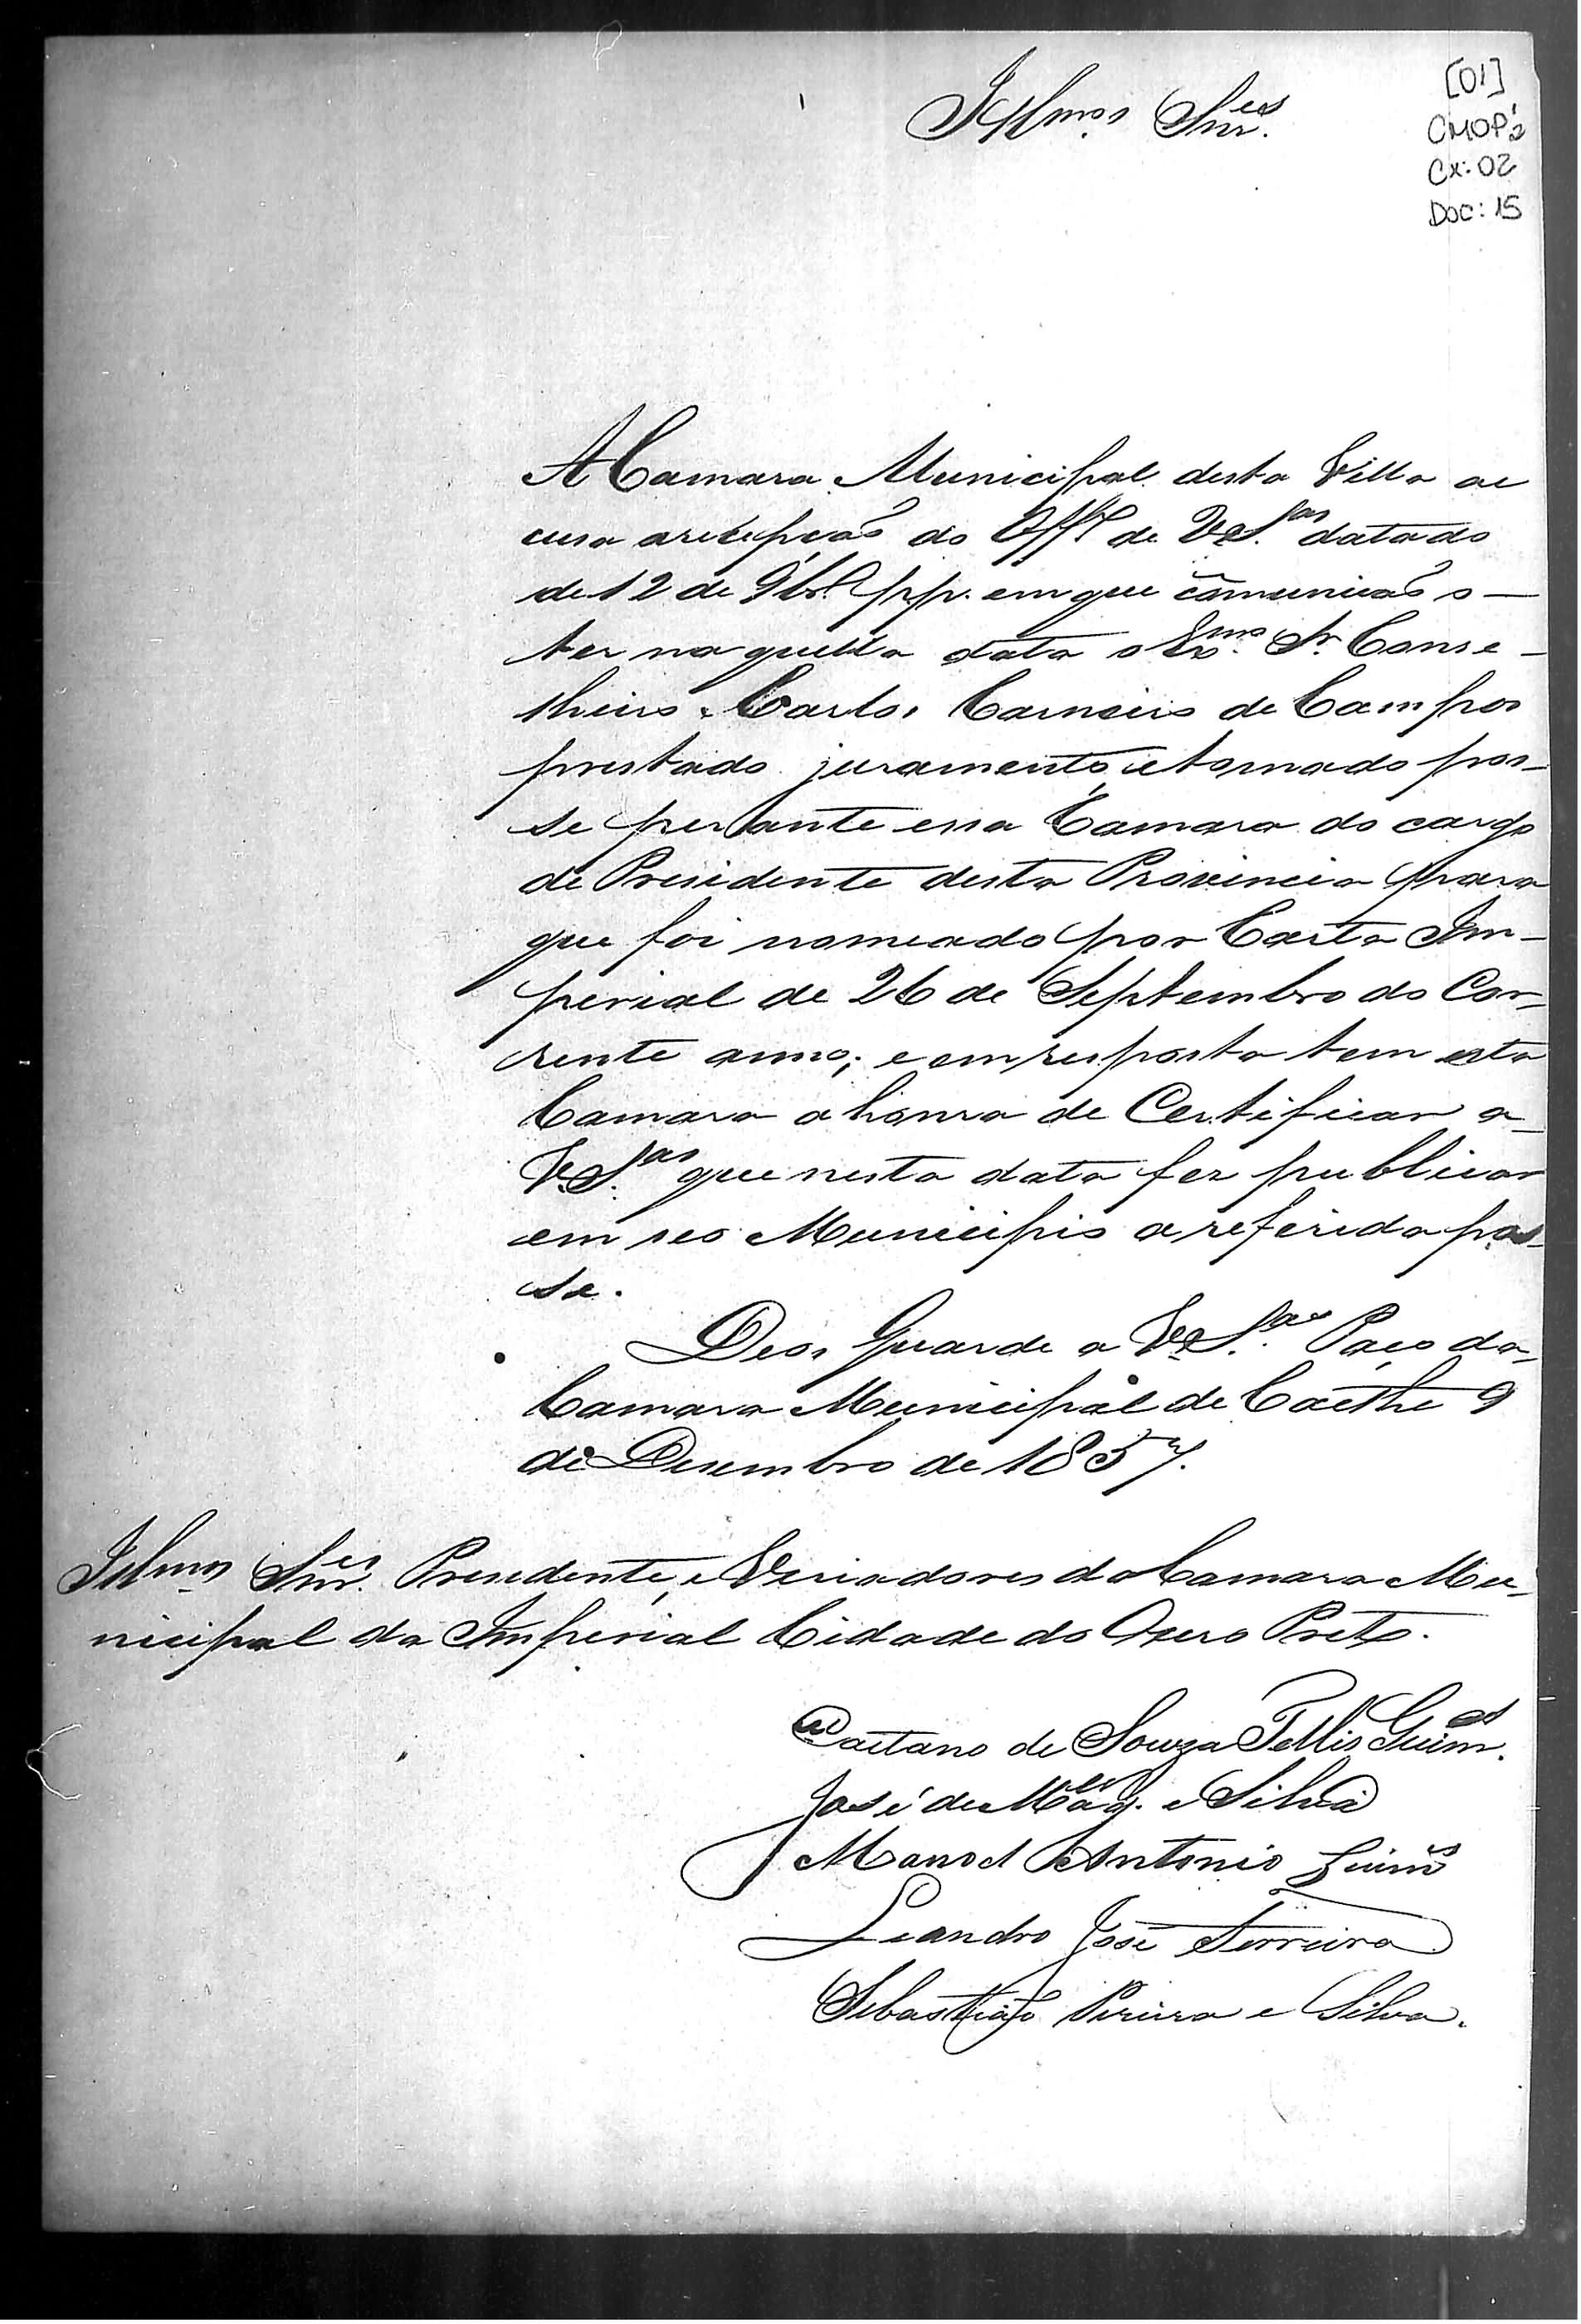 [01]
CMOP 2
Cx: 02
Doc: 15
Illmos. Snres.
A Camara Municipal desta Villa ac
cusa a recepção do Offo de V.Sas. datado
de 12 de 9br. pp. em que communicão o
ter naquella data o Exmo. Sr. Conse-
lheiro Carlos Carneiro de Campos
prestado juramento, e tomado pos-
se perante essa Camara do cargo
de Presidente desta Provincia para
que foi nomeado por Carta Im-
perial de 26 de Septembro do Cor-
rente anno; e em resposta tem esta
Camara a honra de Certificar a
V.Sas. que nesta data fez publicar
em seo Municipio a referida pos-
se.
Deos Guarde a V.Sas. Paço da
Camara Municipal de Caethe 9
de Desembro de 1857.
Illmos Snres. Presidente, e Veriadores da Camara Mu-
nicipal da Imperial Cidade do Ouro Preto.
Caetano de Souza Telles Guimes.
José de Mages. e Silva
Manoel Antonio Guimes
Leandro José Ferreira
Sebastião Pereira e Silva.